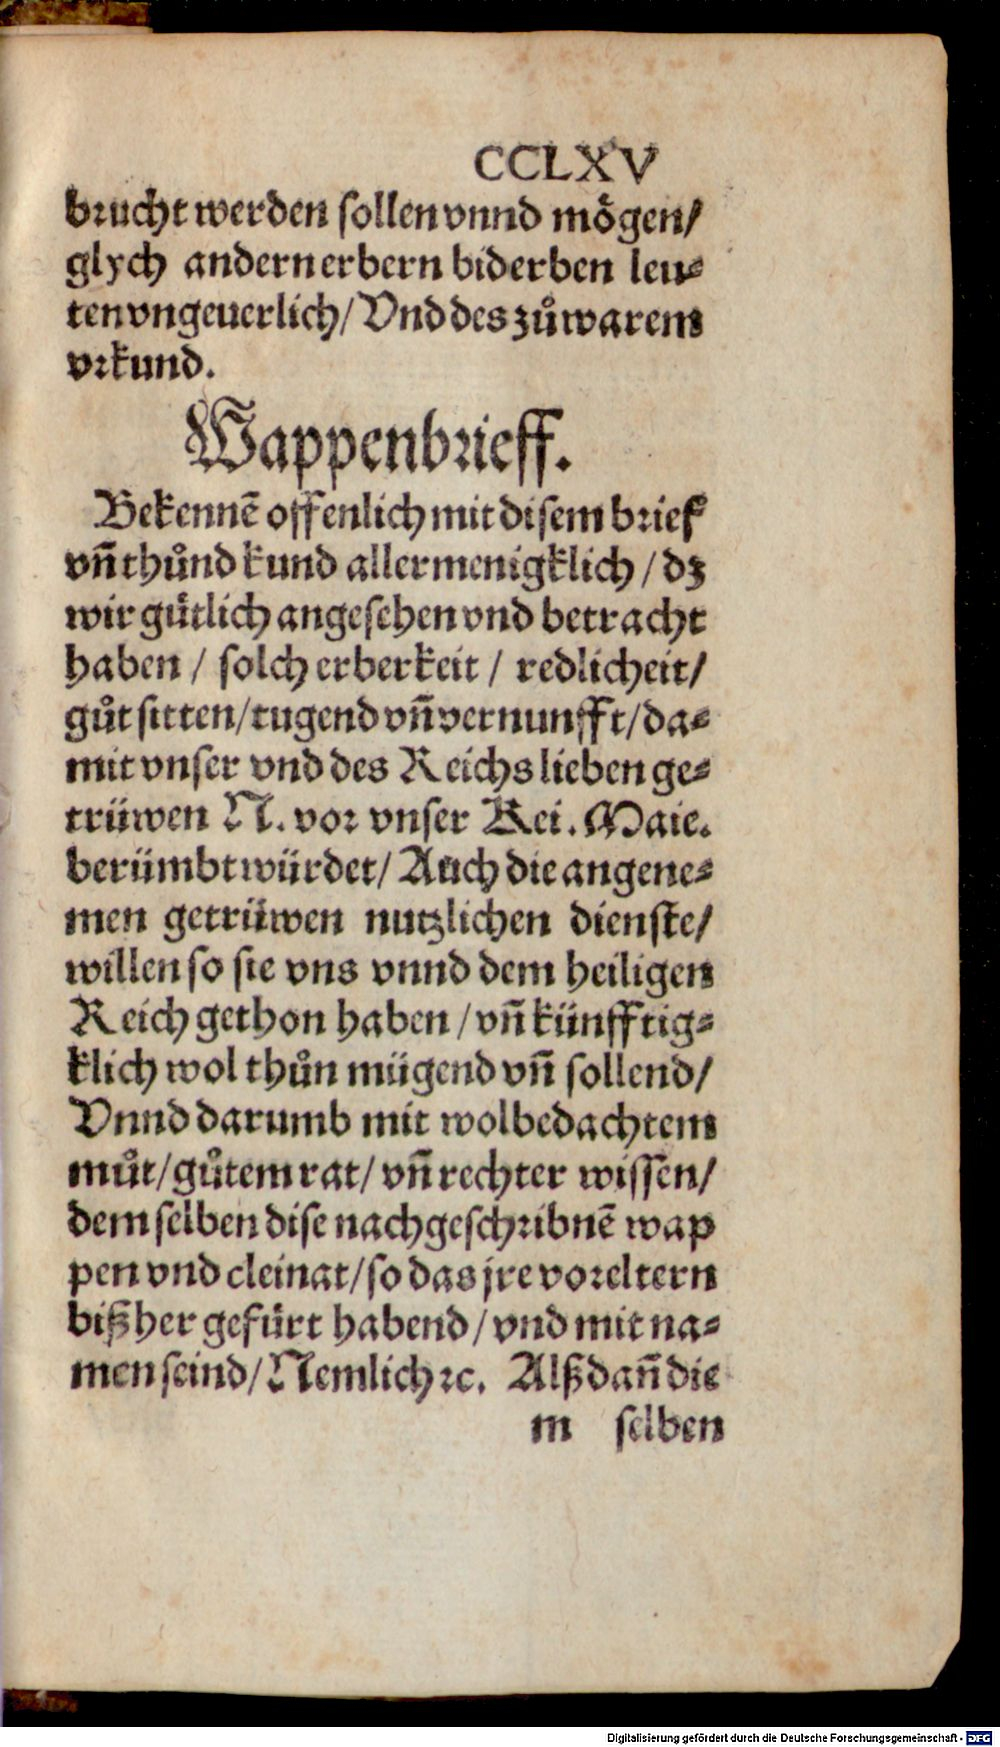 CCLXV
brucht werden sollen vnnd mögen/
glych andern erbern biderben leu⸗
ten vngeuerlich/ Vnd des zuͦ warem
vrkund.
Wappenbrieff.
Bekennē offenlich mit disem brief
vñ thuͦnd kund allermenigklich / dz
wir guͤtlich angesehen vnd betracht
haben / solch erberkeit / redlicheit/
guͦt sitten/ tugend vñ vernunfft/ da⸗
mit vnser vnd des Reichs lieben ge⸗
trüwen N. vor vnser Kei. Maie.
berümbt würdet/ Auch die angene⸗
men getrüwen nutzlichen dienste/
willen so sie vns vnnd dem heiligen
Reich gethon haben / vñ künfftig⸗
klich wol thuͦn mügend vñ sollend/
Vnnd darumb mit wolbedachtem
muͦt/ guͦtem rat/ vñ rechter wissen/
dem selben dise nachgeschribnē wap
pen vnd cleinat/ so das jre voreltern
bißher gefuͤrt habend / vnd mit na⸗
men seind/ Nemlich ꝛc. Alß dañ die
m selben
Digitalisierung gefördert durch die Deutsche Forschungsgemeinschaft - DFG